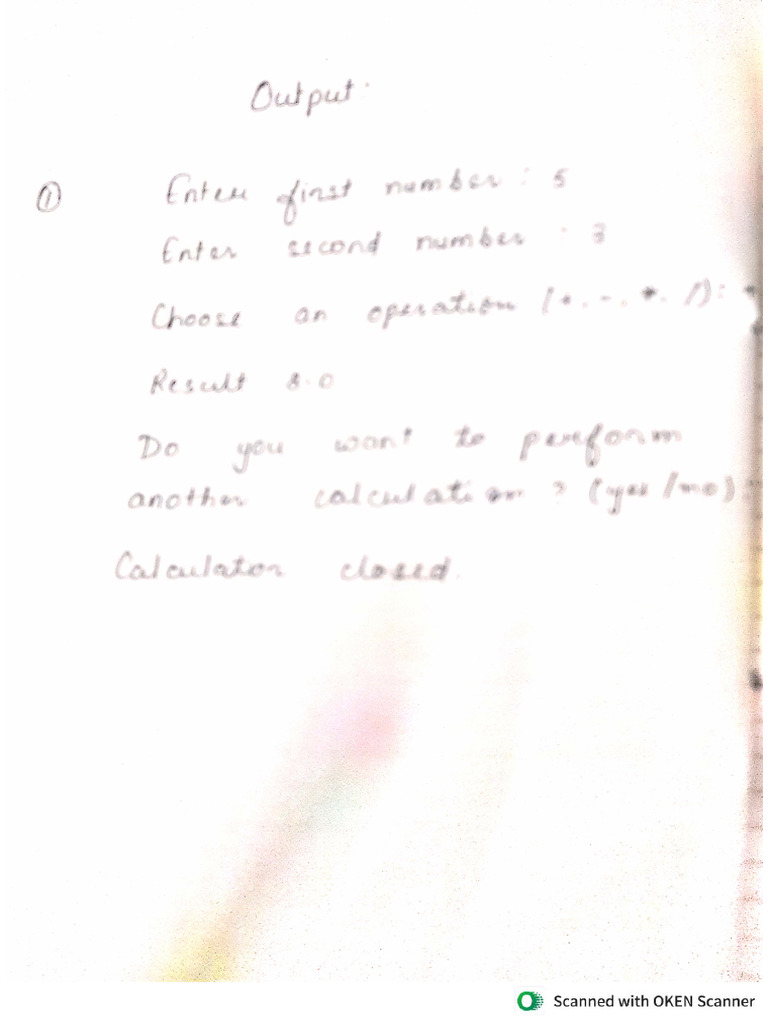 Output:
① Enter first number : 5
Enter second number : 3
Choose an operation (+, -, *, /):
Result 8.0
Do you want to perform
another calculation ? (yes/no):
Calculator closed.
Scanned with OKEN Scanner